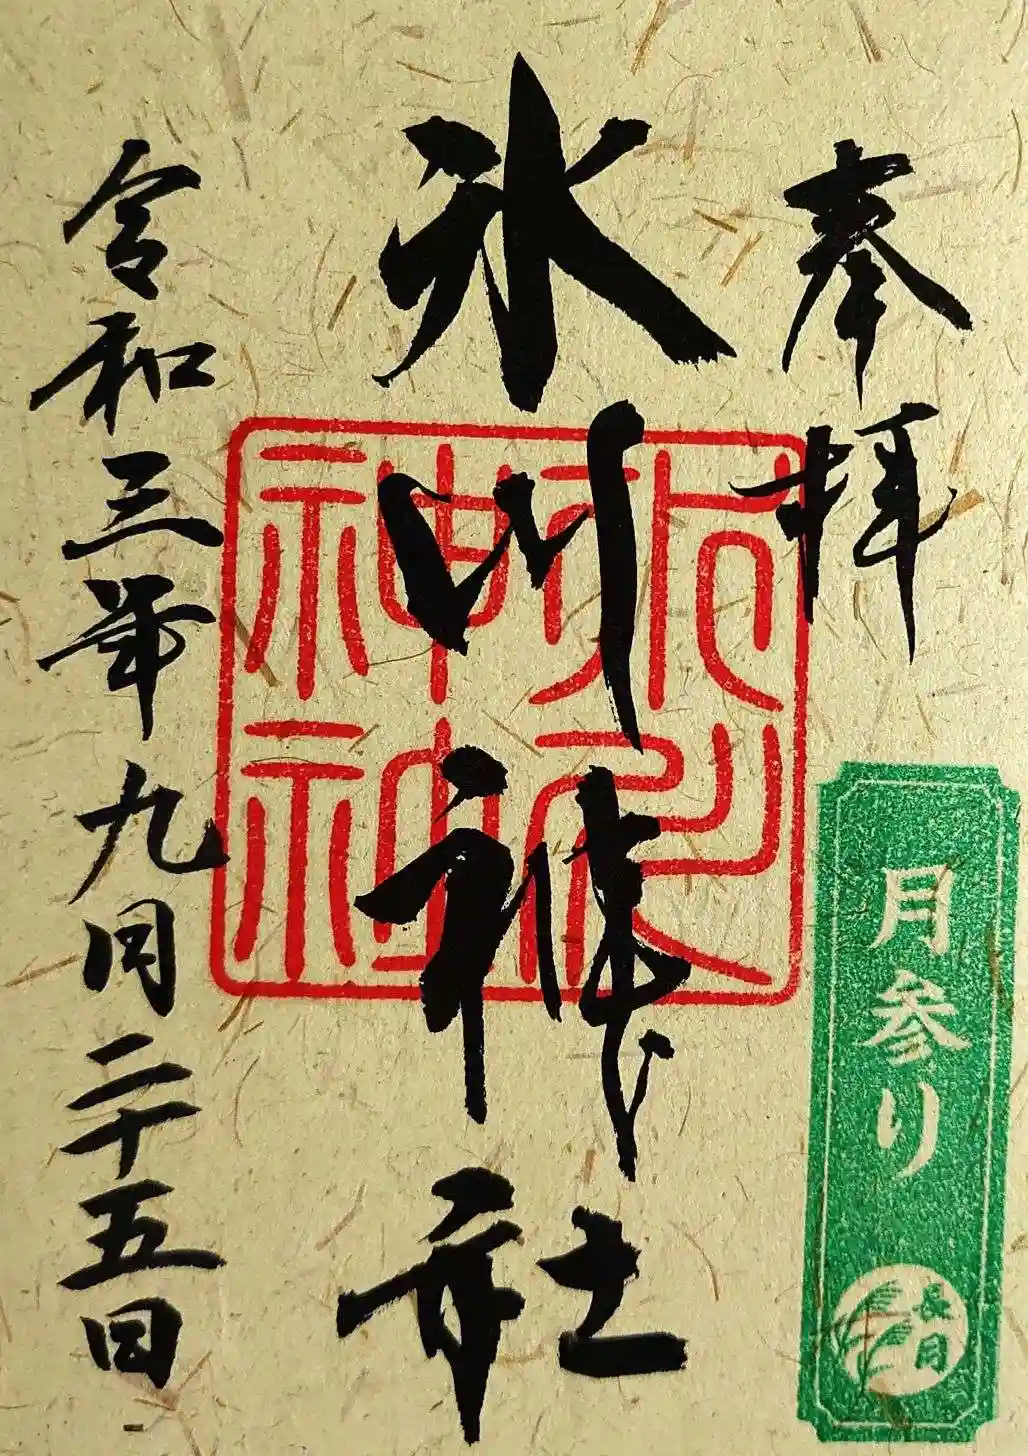 奉拝
月参り
長月
氷川神社
氷川神社
令和三年九月二十五日